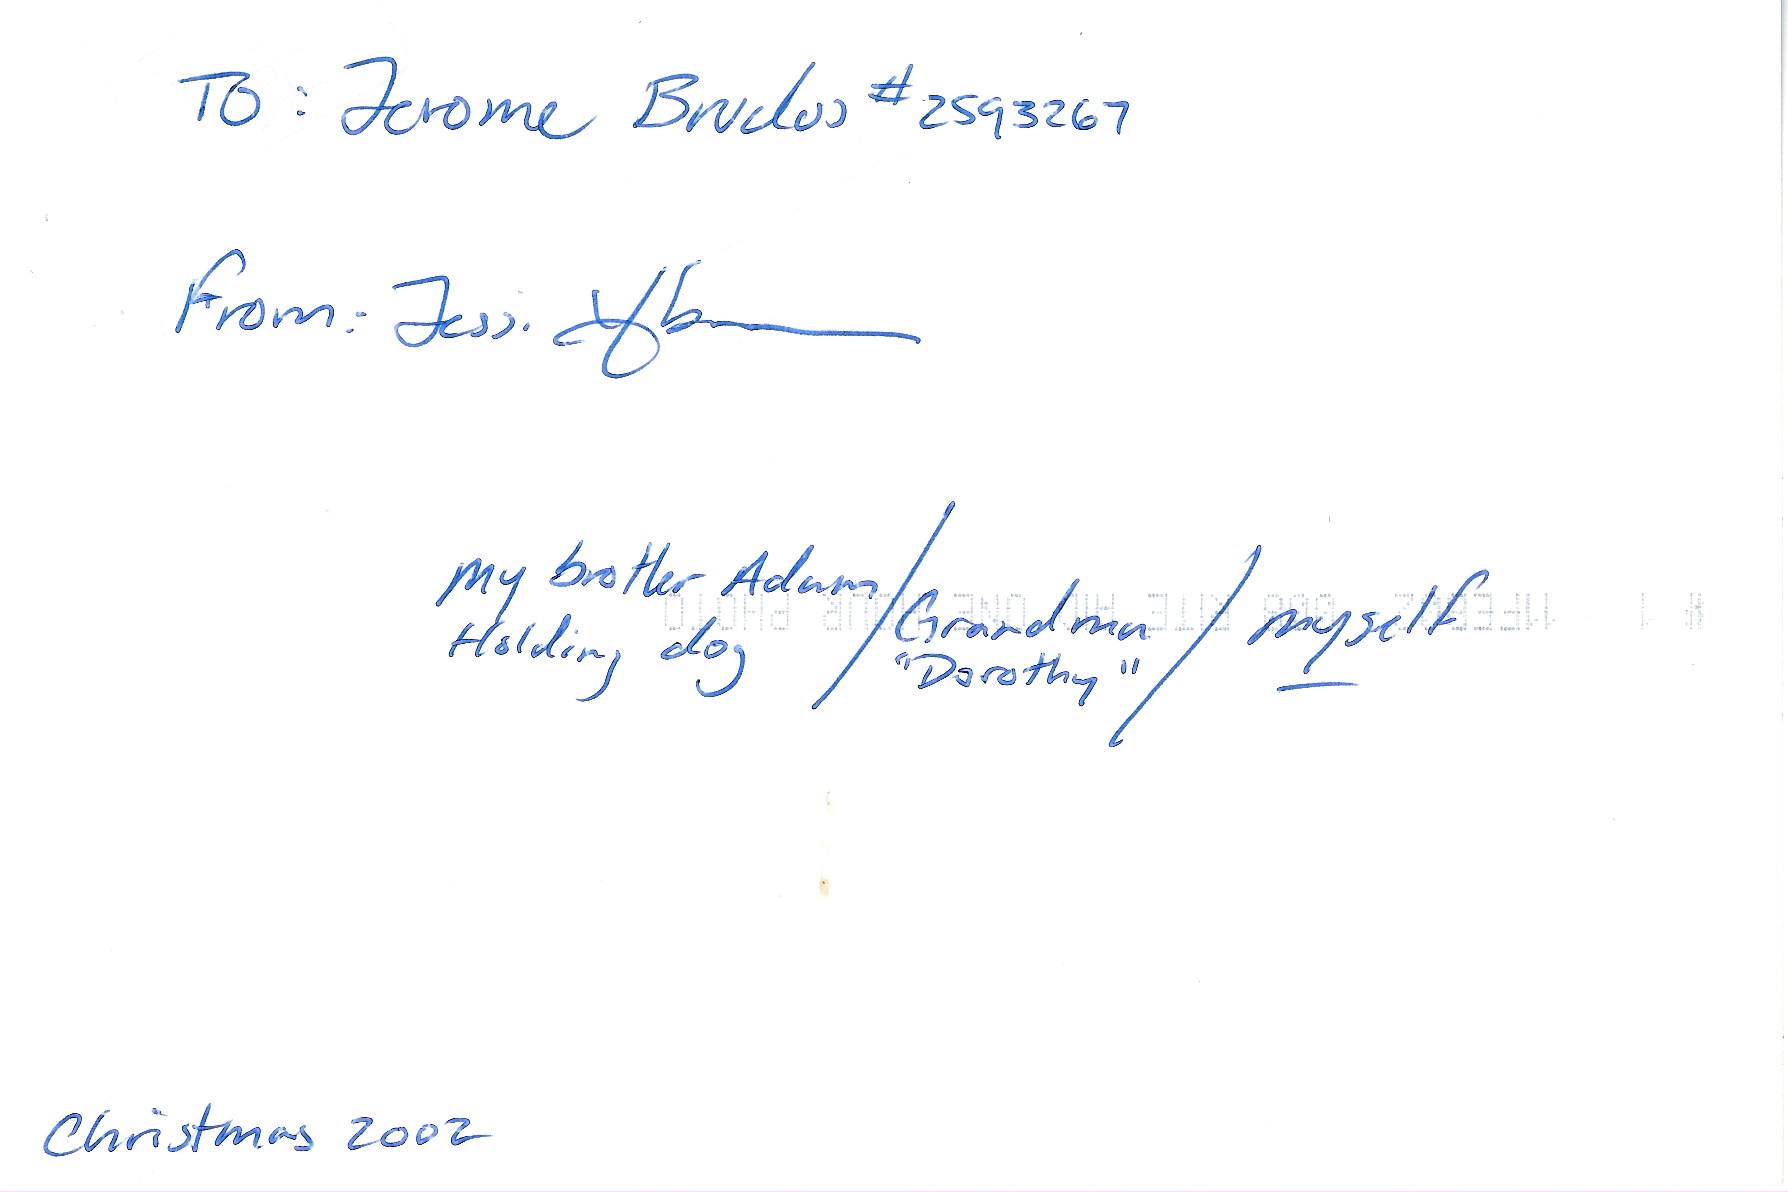 TO: Jerome Brudos #2593267
From: Jess.
my brother Adam / Grandma / myself
Holding dog "Dorothy"
Christmas 2002